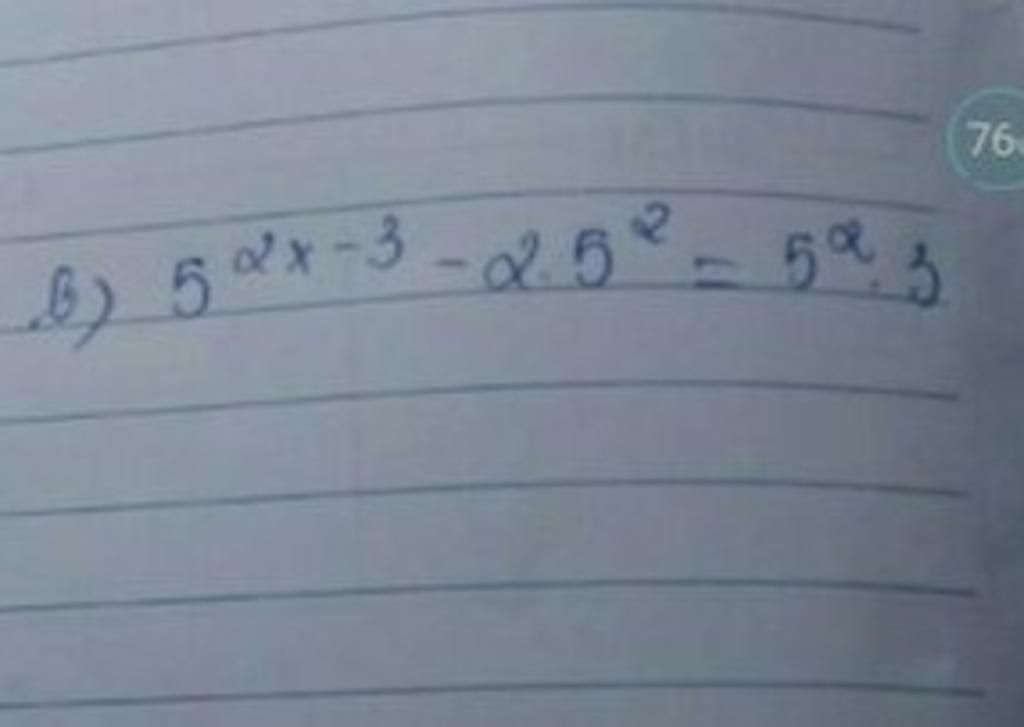 b) 5^{2x-3} - 2.5^{2} = 5^{2}.3
76